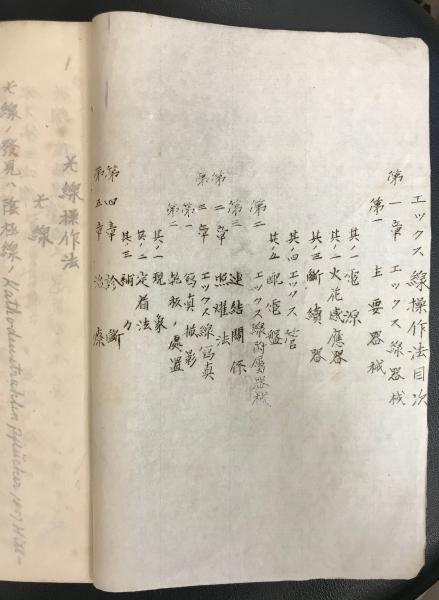 エックス線操作法目次
第一章 エックス線器械
第一 主要器械
其ノ一電源
其ノ二火花感應器
其ノ三斷續器
其ノ四エックス管
其ノ五配電盤
第二 エックス線附屬器械
第三 連結關係
第二章 照燿法
第三章 エックス線寫眞
第一 寫眞撮影
第二 乾板ノ處置
其ノ一現象
其ノ二定着法
其ノ三補力
第四章 診斷
第五章 治療
X線操作法
X線
X線ノ發見ハ陰極線ノKathodenstrahlen Plücker